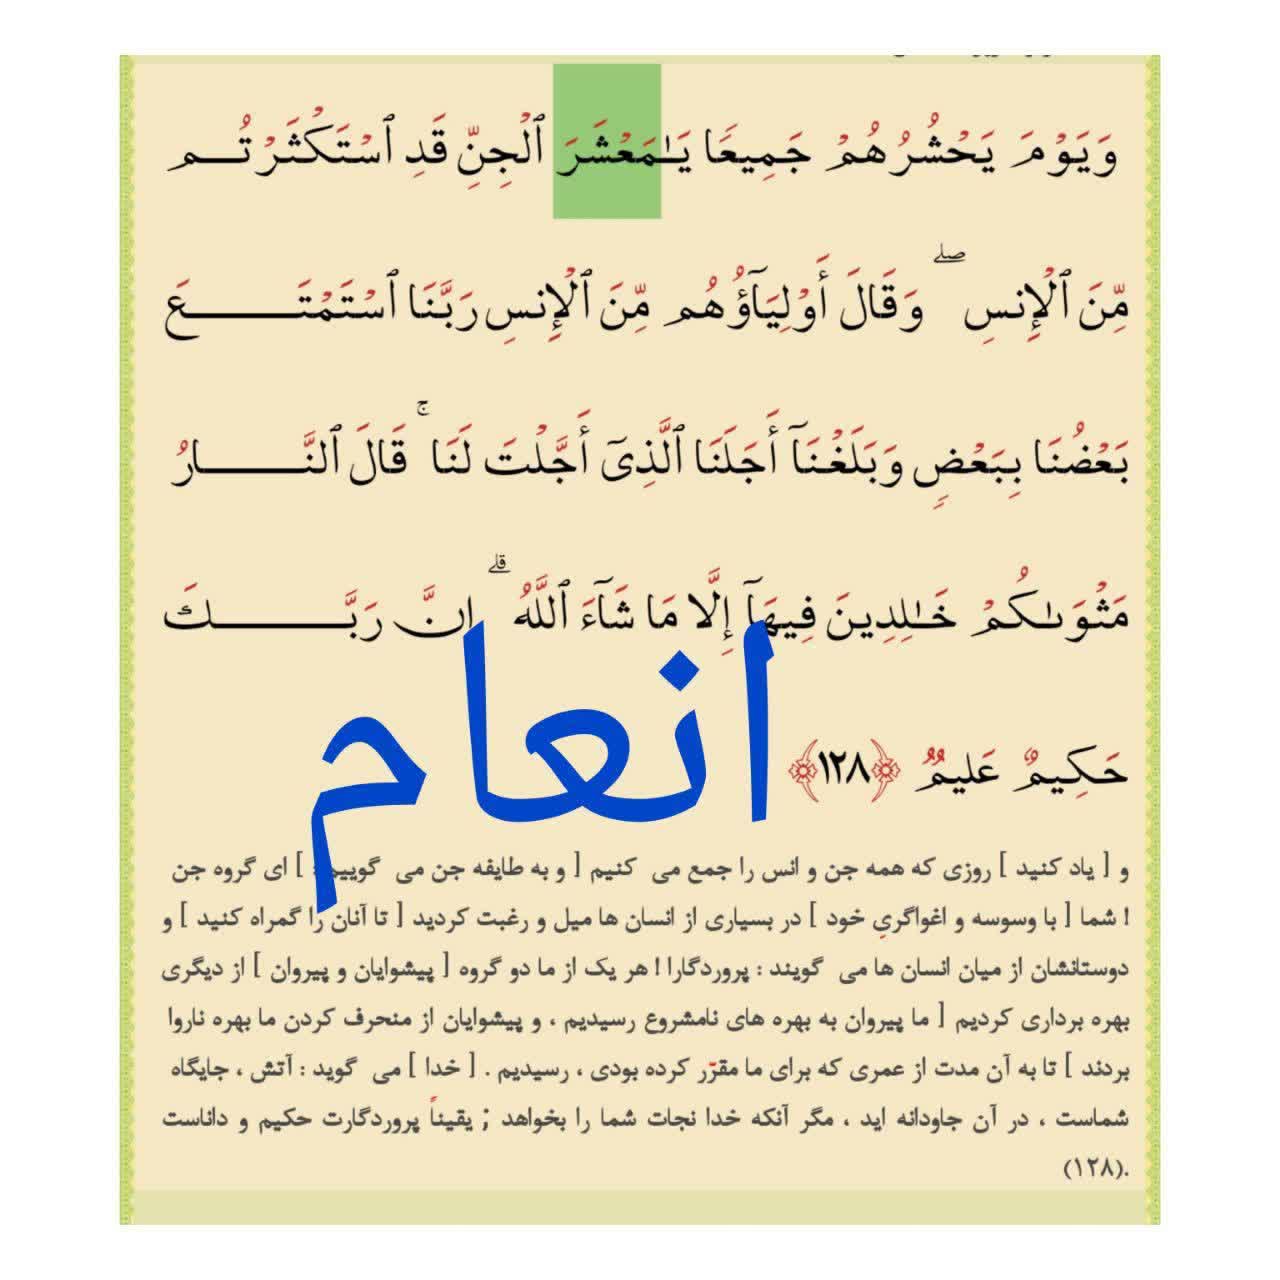 وَيَوْمَ يَحْشُرُهُمْ جَمِيعًا يَـٰمَعْشَرَ ٱلْجِنِّ قَدِ ٱسْتَكْثَرْتُـــم
مِّنَ ٱلْإِنسِ ۖ وَقَالَ أَوْلِيَآؤُهُم مِّنَ ٱلْإِنسِ رَبَّنَا ٱسْتَمْتَـــــعَ
بَعْضُنَا بِبَعْضٍ وَبَلَغْنَآ أَجَلَنَا ٱلَّذِىٓ أَجَّلْتَ لَنَا ۚ قَالَ ٱلنَّـــــارُ
مَثْوَىٰكُمْ خَـٰلِدِينَ فِيهَآ إِلَّا مَا شَآءَ ٱللَّهُ ۗ إِنَّ رَبَّـــــكَ
حَكِيمٌ عَلِيمٌ ﴿١٢٨﴾
انعام
و [ یاد کنید ] روزی که همه جن و انس را جمع می کنیم [ و به طایفه جن می گوییم : ] ای گروه جن
! شما [ با وسوسه و اغواگریِ خود ] در بسیاری از انسان ها میل و رغبت کردید [ تا آنان را گمراه کنید ] و
دوستانشان از میان انسان ها می گویند : پروردگارا ! هر یک از ما دو گروه [ پیشوایان و پیروان ] از دیگری
بهره برداری کردیم [ ما پیروان به بهره های نامشروع رسیدیم ، و پیشوایان از منحرف کردن ما بهره ناروا
بردند ] تا به آن مدت از عمری که برای ما مقرّر کرده بودی ، رسیدیم . [ خدا ] می گوید : آتش ، جایگاه
شماست ، در آن جاودانه اید ، مگر آنکه خدا نجات شما را بخواهد ; یقیناً پروردگارت حکیم و داناست
.(۱۲۸)